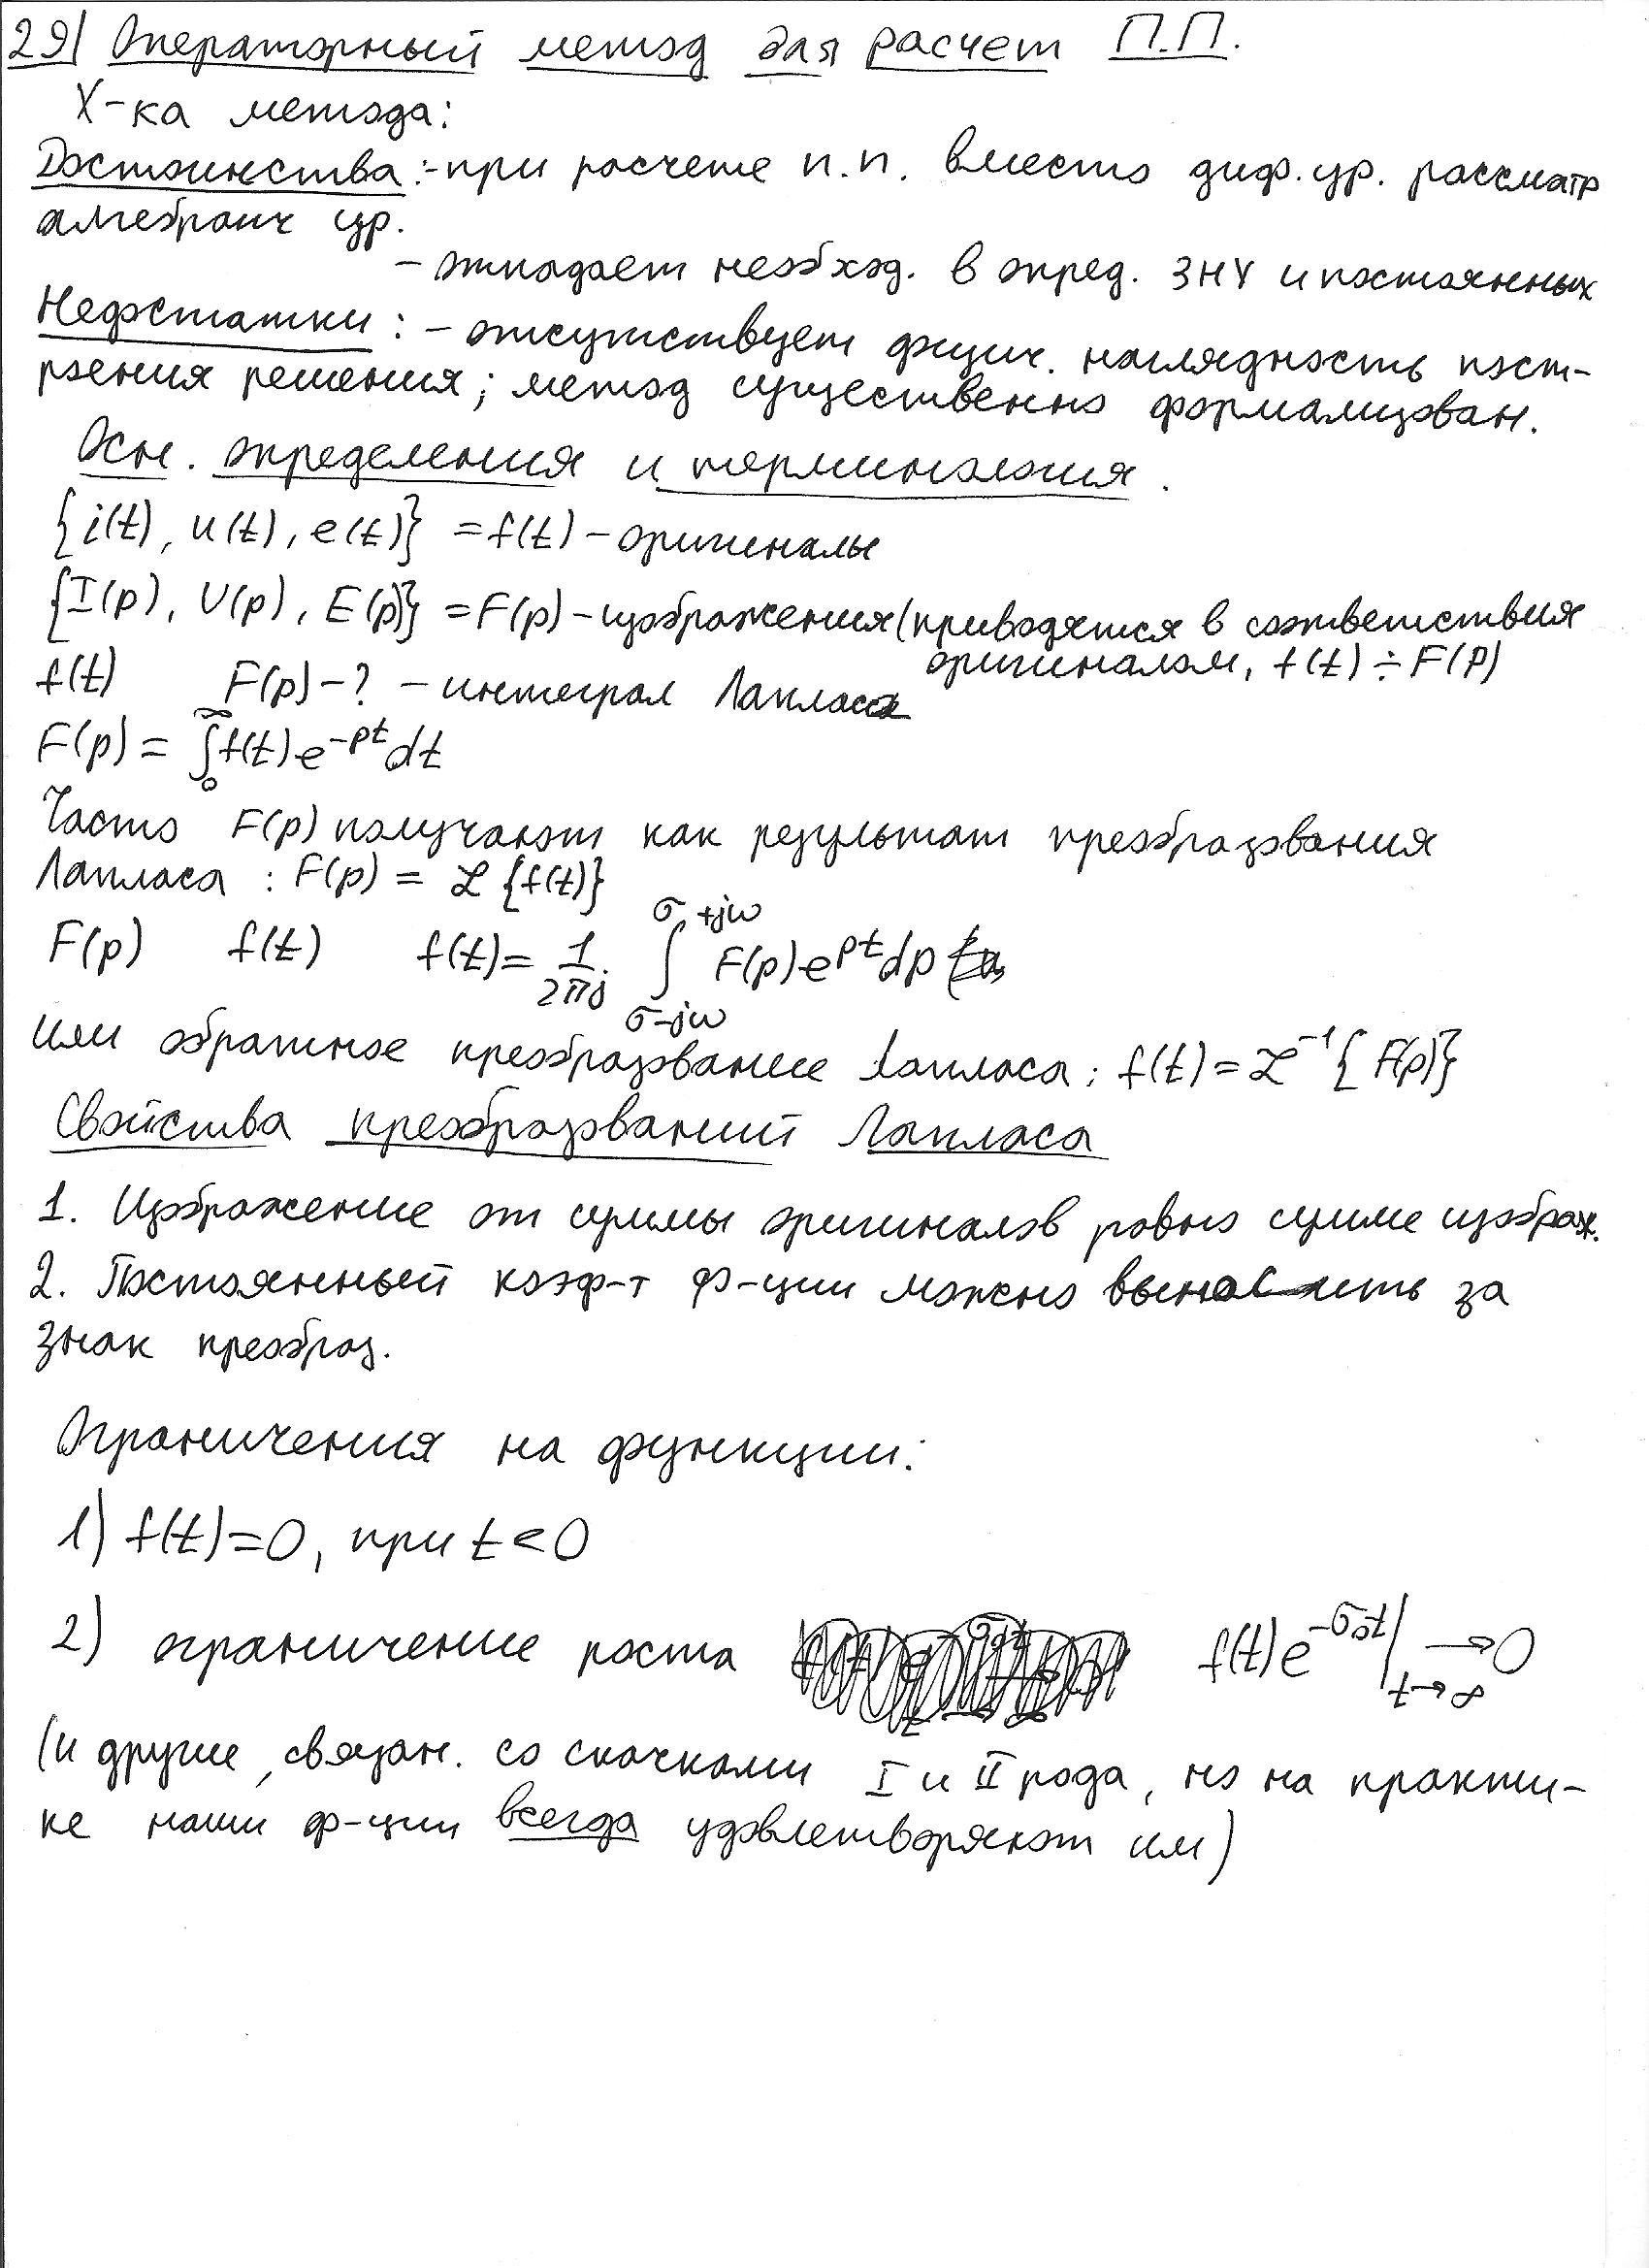 29) Операторный метод для расчет П.П.
Х-ка метода:
Достоинства: - при расчете п.п. вместо диф. ур. рассматр
алгебраич ур.
- отпадает необход. в опред. ЗНУ и постоянных
Недостатки: - отсутствует физич. наглядность пост-
роения решения; метод существенно формализован.
Осн. определения и терминология.
{i(t), u(t), e(t)} = f(t) - оригиналы
{I(p), U(p), E(p)} = F(p) - изображения (приводятся в соответствия
оригиналом, f(t) ÷ F(p)
f(t) F(p) - ? - интеграл Лапласа
F(p) = ∫₀^∞ f(t) e^{-pt} dt
Часто F(p) получают как результат преобразования
Лапласа: F(p) = ℒ {f(t)}
F(p) f(t) f(t) = 1/(2πj) ∫_{σ-jω}^{σ+jω} F(p) e^{pt} dp
или обратное преобразование Лапласа: f(t) = ℒ⁻¹ {F(p)}
Свойства преобразований Лапласа
1. Изображение от суммы оригиналов равно сумме изображ.
2. Постоянный коэф-т ф-ции можно выносить за
знак преобраз.
Ограничения на функции:
1) f(t) = 0, при t < 0
2) ограничение роста f(t) e^{-σ₀t} |_{t→∞} → 0
(и другие, связан. со скачками I и II рода, но на практи-
ке наши ф-ции всегда удовлетворяют им)